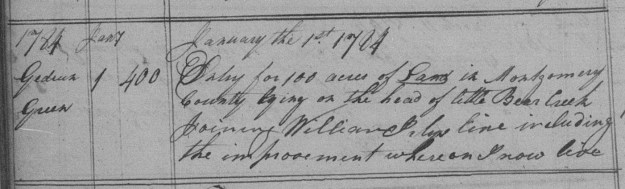 1784 Jany January the 1st 1784
Gedeon 1 400 Entry for 100 acres of Land in Montgomery
Green County lying on the head of little Bear Creek
Joining William line including
the improvement whereon I now live